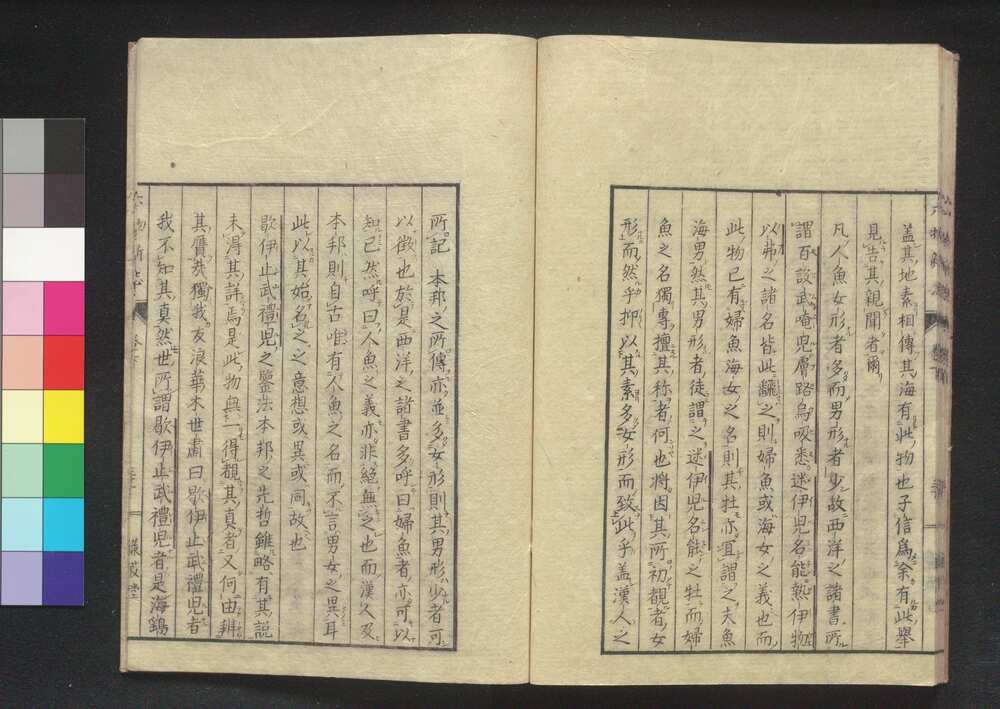 蓋其地素相傳其海有此物也子信爲余有此舉
見告其親聞者爾
凡人魚女形者多而男形者少故西洋之諸書所
謂百設武唵兒膚路烏吸悉迷伊児名能熱伊物
以弗之諸名皆此飜之則婦魚或海女之義也而
此物已有婦魚海女之名則其牡亦宜謂之夫魚
海男然其男形者徒謂之迷伊児名能之牡而婦
魚之名獨專擅其称者何也將因其所初覩者女
形而然乎抑以其素多女形而致此乎蓋漢人之
所記 本邦之所傳亦並多女形則其男形少者可
以徴也於是西洋之諸書多呼曰婦魚者亦可以
知已然呼曰人魚之義亦非絕無之也而漢人及
本邦則自古唯有人魚之名而不言男女之異耳
此以其始名之之意想或異或同故也
歇伊止武禮児之鑒法本邦之先哲雖略有其説
未得其詳焉是此物與一得覩其真者又何由辨
其贋哉獨我友浪華木世肅曰歇伊止武禮児者
我不知其真然世所謂歇伊止武禮児者是海鷂